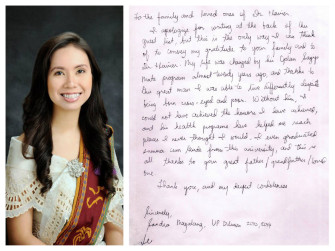 To the family and loved ones of Dr. Flavier:
I apologize for writing at the back of the
guest list, but this is the only way I can think
of to convey my gratitude to your family and to
Dr. Flavier. My life was changed by his
program almost twenty years ago, and thanks to
this great man I was able to live differently despite
being born cross-eyed and poor. Without him, I
could not have achieved the honors I have achieved,
and his health programs have helped me reach
places I never thought I would. I even graduated
summa cum laude from this university, and this is
all thanks to your great father/grandfather/loved
one.
Thank you, and my deepest condolences.
Sincerely,
Sandra UP Diliman